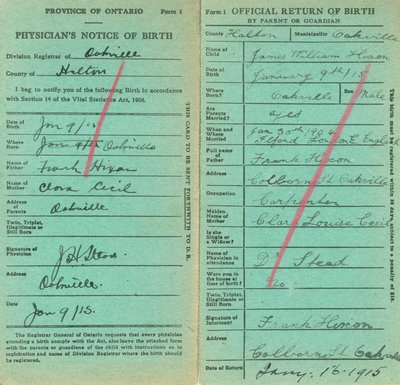 PROVINCE OF ONTARIO Form 1
PHYSICIAN'S NOTICE OF BIRTH
Division Registrar of Oakville
County of Halton
I beg to notify you of the following Birth in accordance
with Section 14 of the Vital Statistics Act, 1908.
Date of Birth Jan 9/15
Where Born Jan 9/15 Oakville
Name of Father Frank Hixon
Name of Mother Clora Cecil
Address of Parents Oakville
Twin, Triplet, Illegitimate or Still Born
Signature of Physician J H Stead
Address Oakville.
Date Jan 9/15.
The Registrar General of Ontario requests that every physician
attending a birth comply with the Act, also leave the attached form
with the parents or guardians of the child with instructions as to
registration and name of Division Registrar where the birth should
be registered.
THIS CARD TO BE SENT FORTHWITH TO D.R.
Form 1 OFFICIAL RETURN OF BIRTH
BY PARENT OR GUARDIAN
County Halton Municipality Oakville
Name of Child James William Hixon
Date of Birth January 9th/15
Where Born? Oakville Sex Male
Are Parents Married? yes
When and Where Married Jan 30th 1904 Ilford London E. England
Full name of Father Frank Hixon
Address Colborne St. Oakville
Occupation Carpenter
Maiden Name of Mother Clara Louise Cecil
Is she Single or a Widow?
Name of Physician in attendance Dr Stead
Were you to the house at time of birth?
Twin, Triplet, Illegitimate or Still Born
Signature of Informant Frank Hixon
Address Colborne St Oakville
Jany. 16. 1915
The birth must be registered within 30 days, subject to penalty of